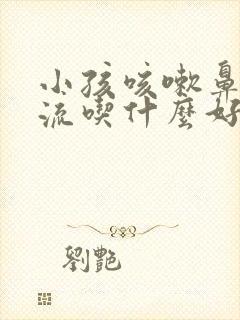 小孩咳嗽鼻
流喫什麼好
劉艷